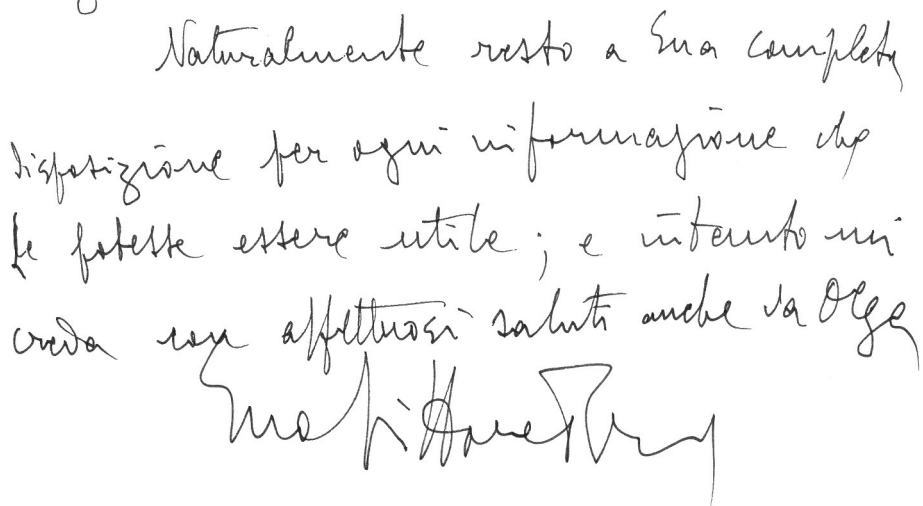 Naturalmente resto a Sua completa
disposizione per ogni informazione che
Le potesse essere utile; e intanto mi
creda con affettuosi saluti anche da Olga
Suo